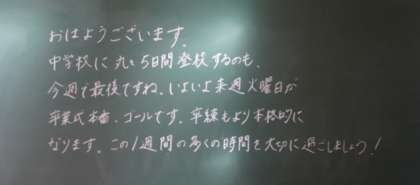 おはようございます。
中学校に丸い5日間登校するのも、
今週で最後ですね。いよいよ来週火曜日が
卒業式本番、ゴールです。卒練もより本格的に
なります。この1週間の多くの時間を大切に過ごしましょう!